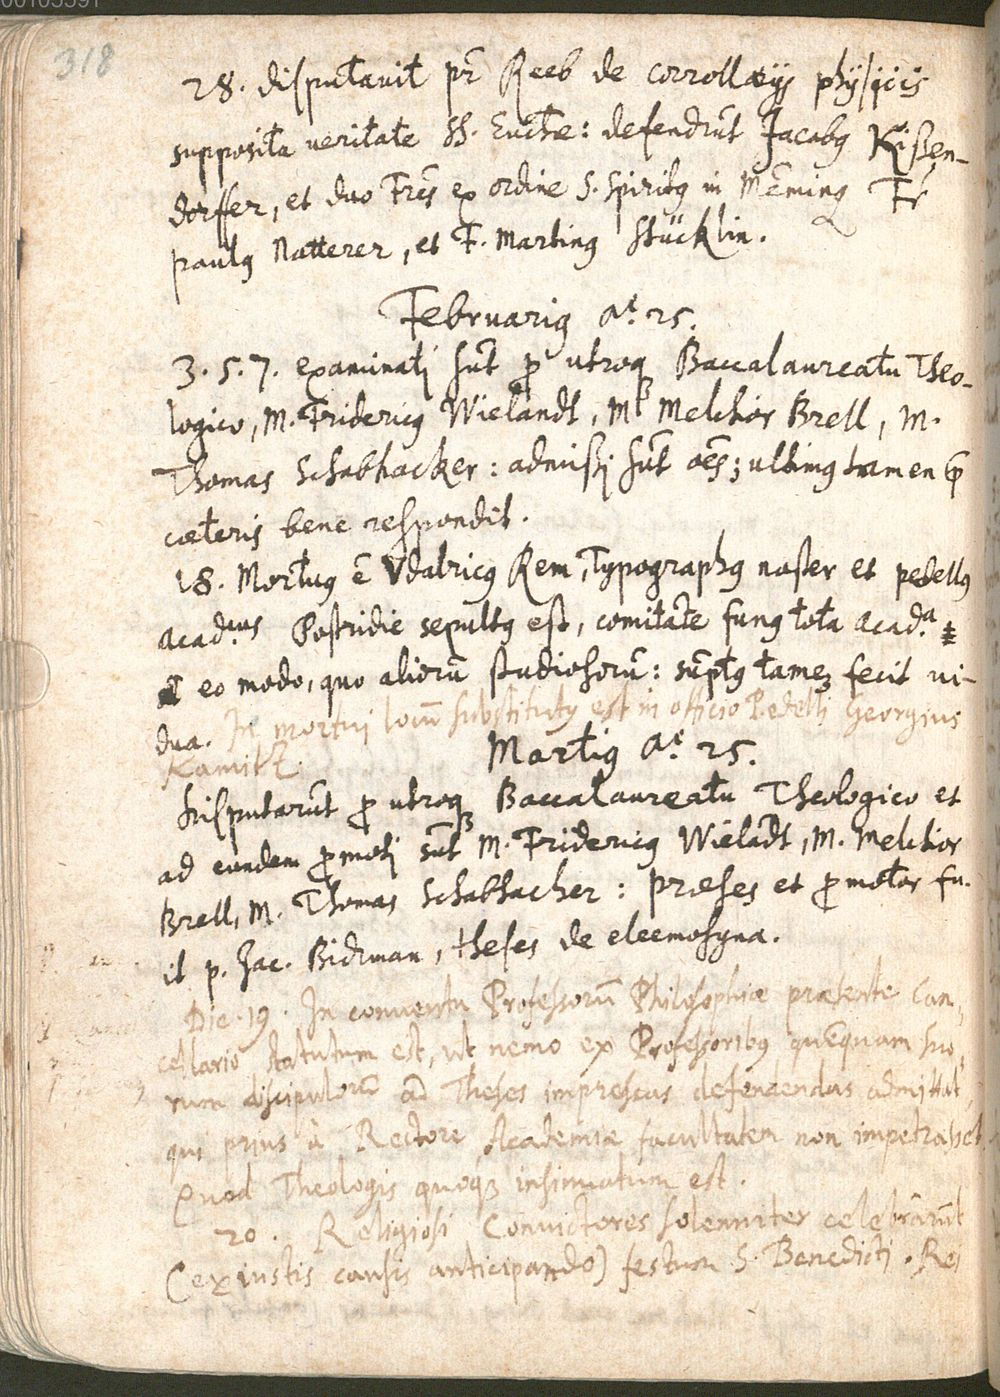 318
28. disputavit pr̄ Reeb de corrollarijs physicis
supposita veritate SS. Euctæ: defendrūt Jacobꝯ Kißen-
dorffer, et duo Frēs ex ordine S. Spiritꝯ in Mēming Fr
paulꝯ Natterer, et F. Martinꝯ Stücklin.
Februariꝯ Aº. 25.
3. 5. 7. examinatj sūt p̄ utroqꝫ Baccalaureatu Theo-
logico, M. Fridericꝯ Wielandt, M Melchior Brell, M.
Thomas Schabhacker: admißj sūt oēs; ultimꝯ tamen p̄
cæteris bene respondit.
18. Mortuꝯ ē Vdalricꝯ Rem, Typographꝯ noster et pedellꝯ
Acad.cus Postridie sepultꝯ est, comitate funꝯ tota Acad.a
eo modo, quo aliorū studiosorū: sūptꝯ tamē fecit vi-
dua. In mortui locū substitutꝯ est in officio Pedelli Georgius
Kamitz.
Martiꝯ Aº. 25.
Disputarūt pro utroqꝫ Baccalaureatu Theologico et
ad eundem promotj sūt M. Fridericꝯ Wielādt, M. Melchior
Brell, M. Thomas Schabhacher: præses et promotor fu-
it p. Jac. Bidrman, theses de eleemosyna.
Die. 19. In conventu Professorū Philosophiæ præsente Can,
cellario statutum est, ut nemo ex Professoribꝯ quēquam suo,
rum discipulorū ad Theses impressas defendendas admittat,
qui prius à Rectore Academiæ facultatem non impetrasset
Quod Theologis quoqꝫ insinuatum est.
20. Religiosi Convictores solenniter celebrārūt
(ex iustis causis anticipando) festum S. Benedicti. Rei